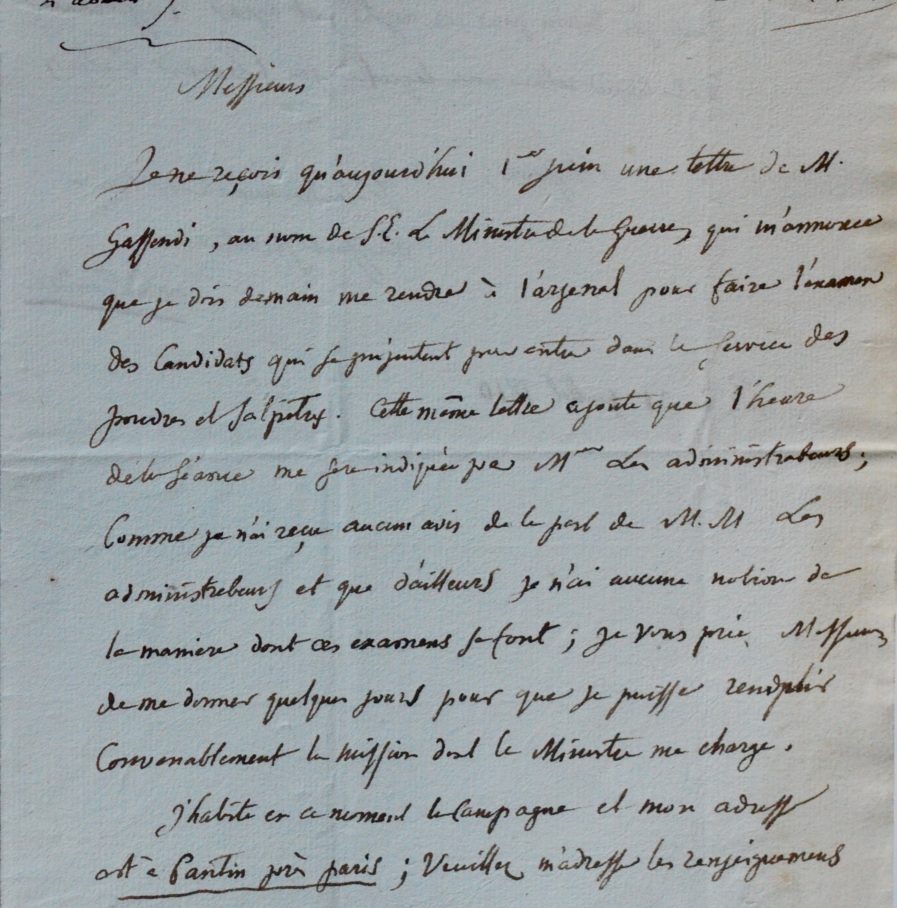 Messieurs
Je ne reçois qu'aujourd'hui 1er juin une lettre de M.
Gassendi, au nom de S.E. Le Ministre de la Guerre, qui m'annonce
que je dois demain me rendre à l'arsenal pour faire l'examen
des Candidats qui se présentent pour entrer dans le service des
poudres et salpetres. Cette même lettre ajoute que l'heure
de la séance me sera indiquée par Mrs Les administrateurs;
Comme je n'ai reçu aucun avis de la part de M.M Les
administrateurs et que d'ailleurs je n'ai aucune notion de
la maniere dont ces examens se font; je vous prie, Messieurs
de me donner quelques jours pour que je puisse remplir
Convenablement la mission dont le Ministre me charge.
J'habite en ce moment la Campagne et mon adresse
est à Pantin près paris; Veuillez m'adresser les renseignemens